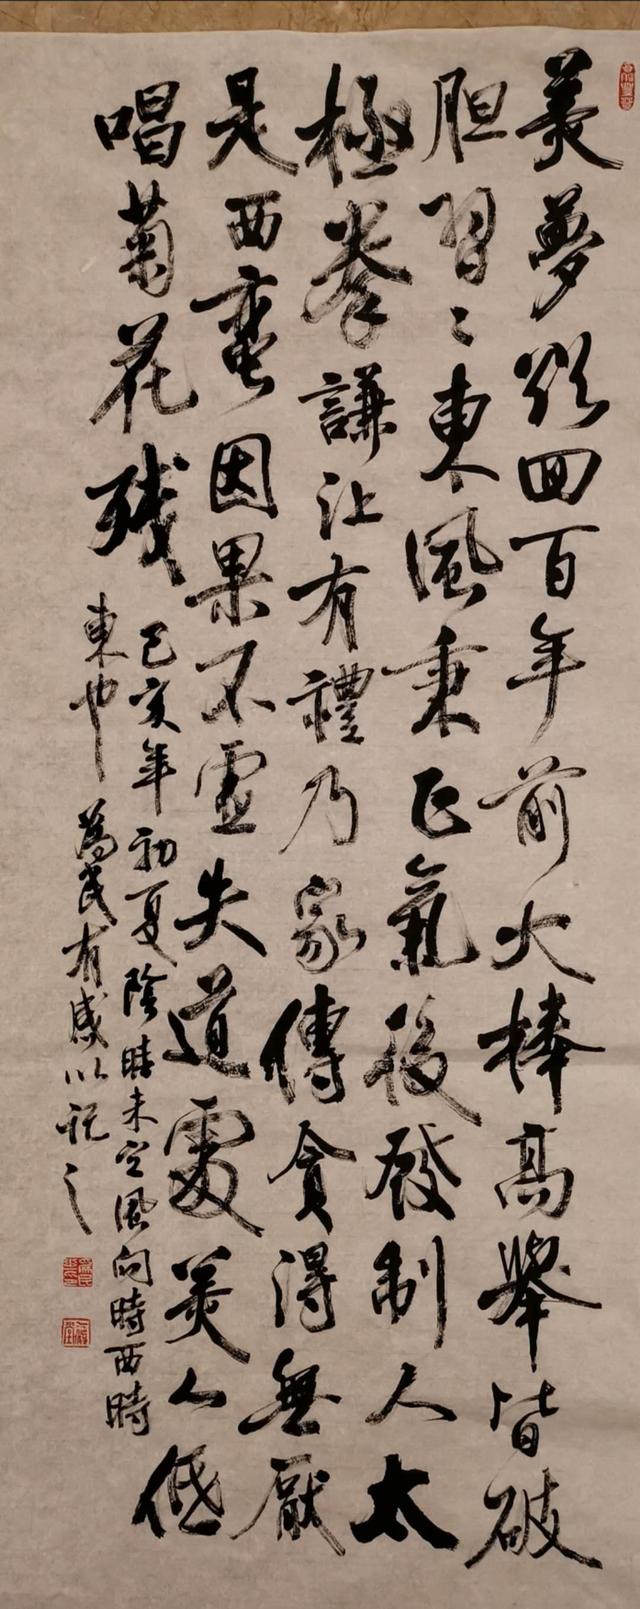 美夢欲回百年前火棒高舉皆破
胆習〻東風秉正氣後發制人太
極拳謙让有禮乃家傳貪得無厭
是西蛮因果不虚失道處美人低
唱菊花残
己亥年初夏陰晴未定風向時西時
東也為民有感以記之